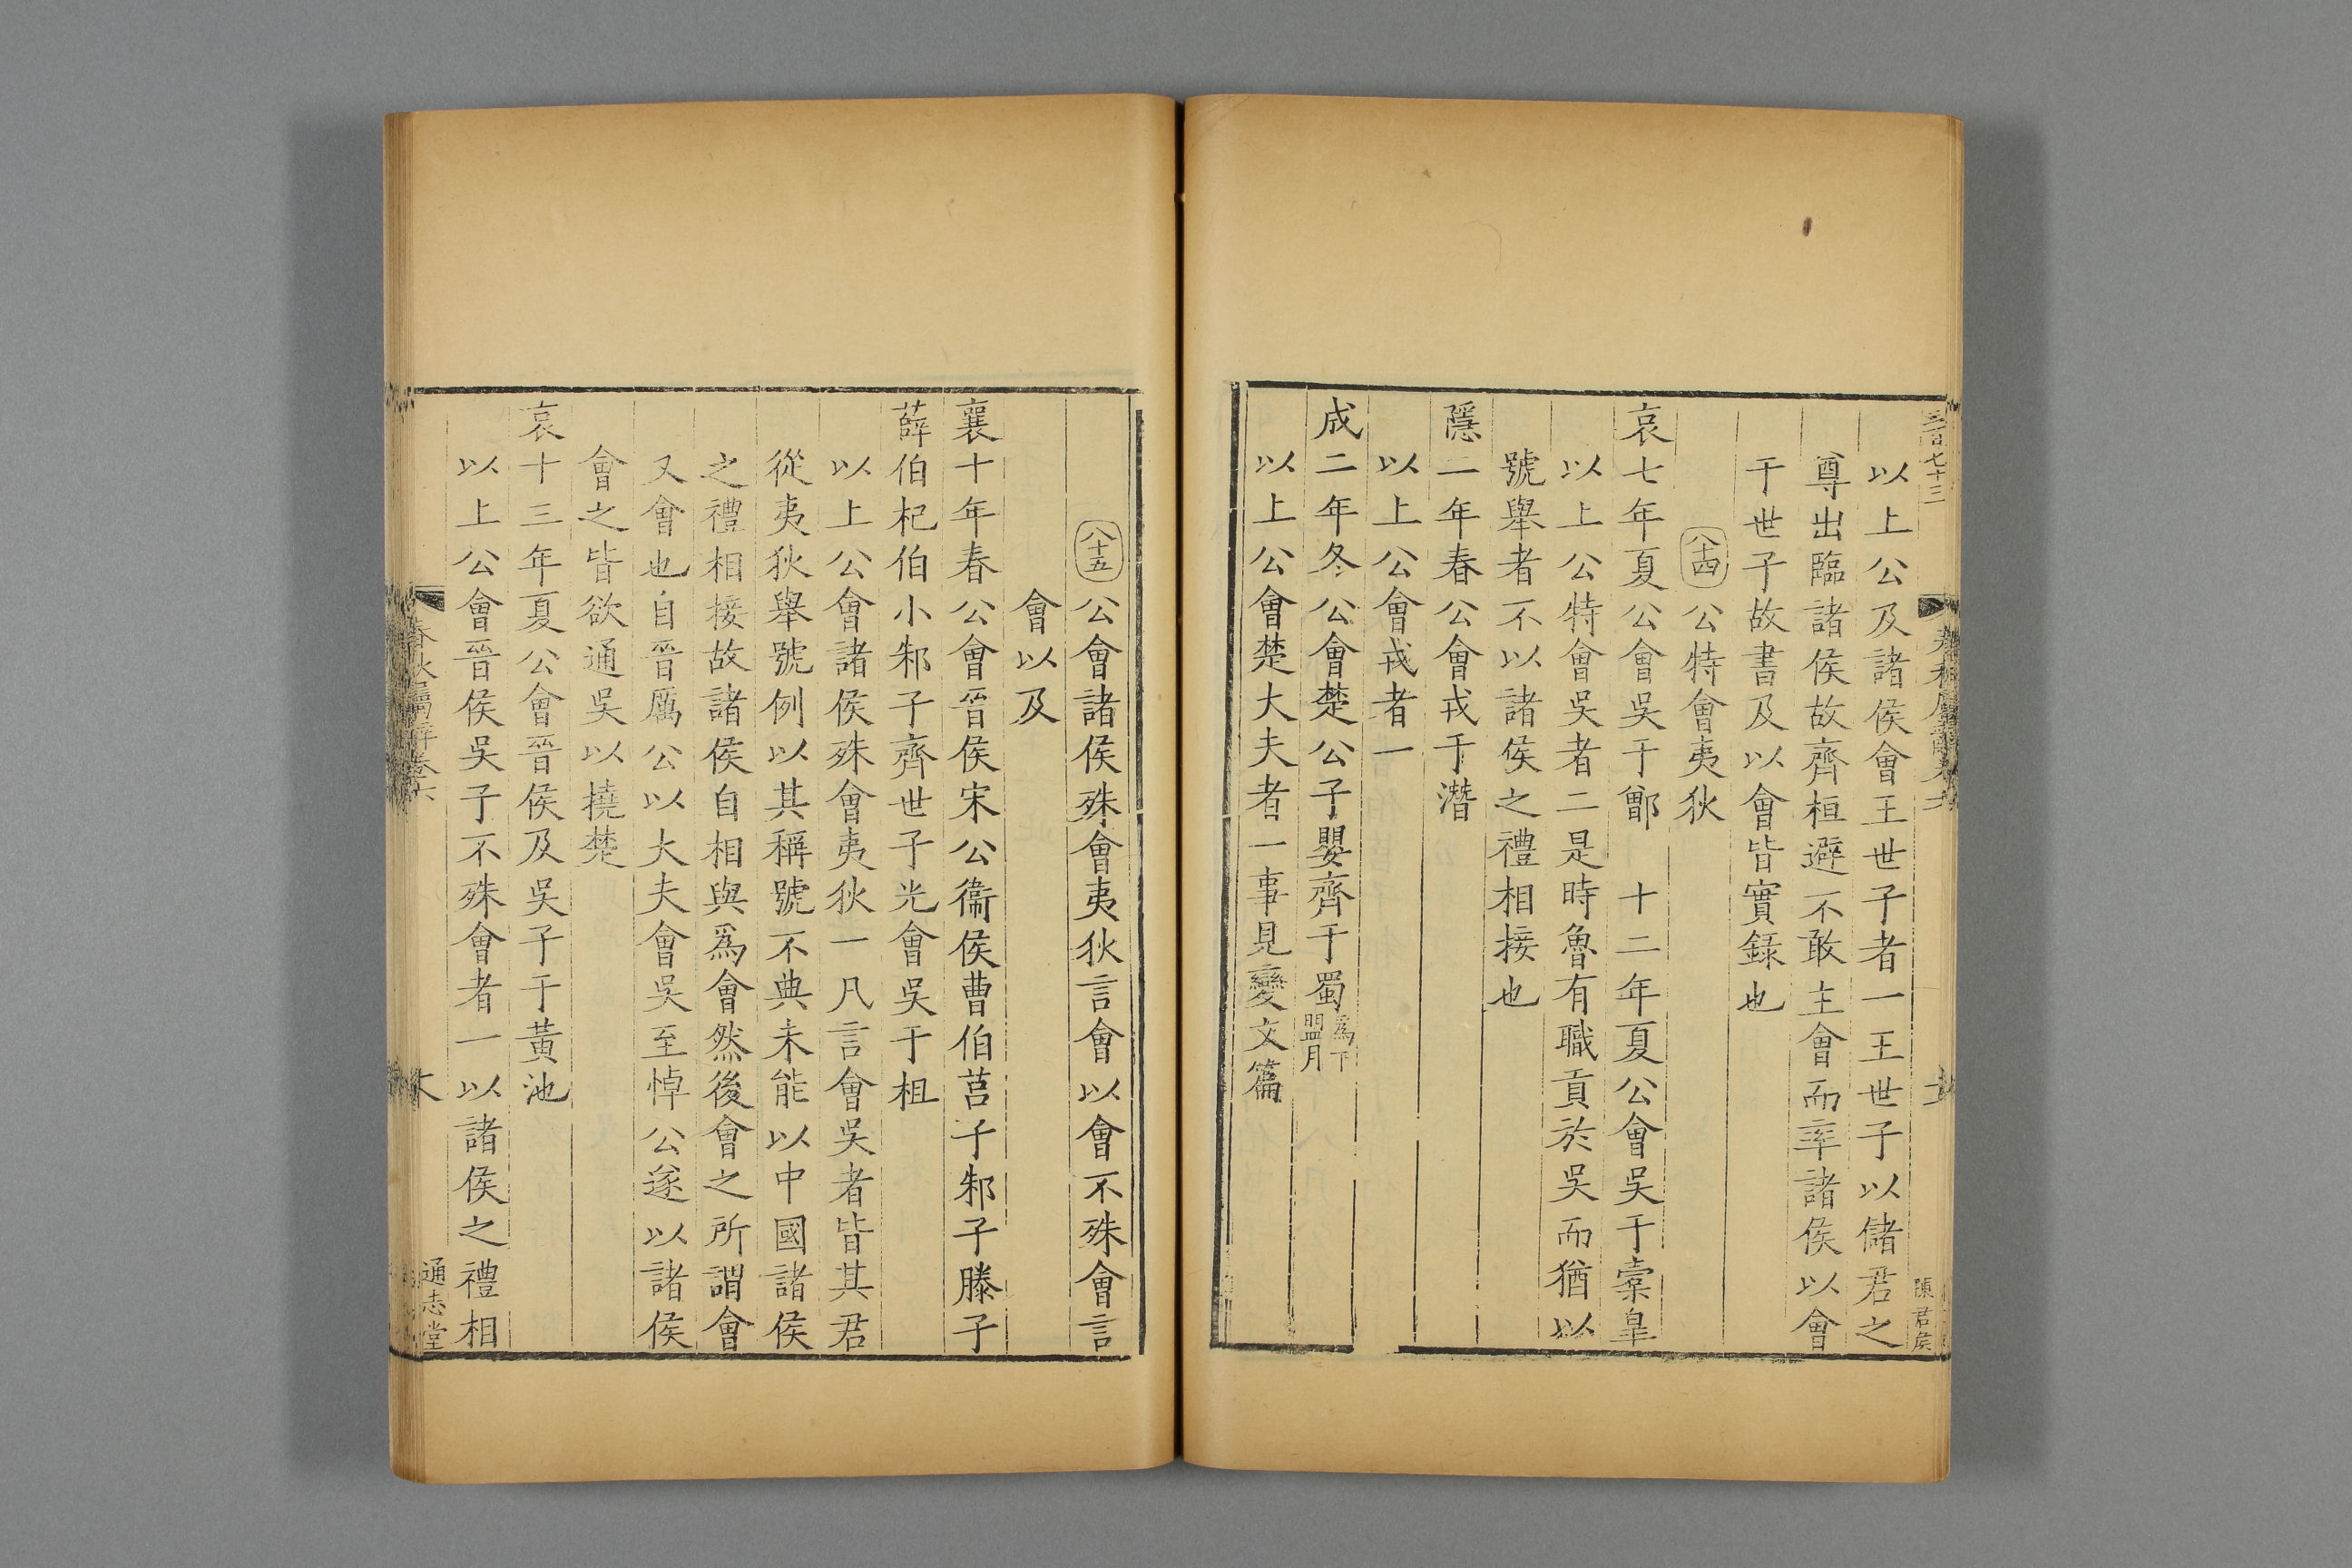 三百七十三
陳君侯
以上公及諸侯會王世子者一王世子以儲君之
尊出臨諸侯故齊桓避不敢主會而率諸侯以會
于世子故書及以會皆實錄也
八十四 公特會夷狄
哀七年夏公會吳于鄫　十二年夏公會吳于橐臯
以上公特會吳者二是時魯有職貢於吳而猶以
號舉者不以諸侯之禮相接也
隱二年春公會戎于潛
以上公會戎者一
成二年冬公會楚公子嬰齊于蜀爲下盟月
以上公會楚大夫者一事見變文篇
八十五 公會諸侯殊會夷狄言會以會不殊會言
會以及
襄十年春公會晉侯宋公衞侯曹伯莒子邾子滕子
薛伯杞伯小邾子齊世子光會吳于柤
以上公會諸侯殊會夷狄一凡言會吳者皆其君
從夷狄舉號例以其稱號不典未能以中國諸侯
之禮相接故諸侯自相與爲會然後會之所謂會
又會也自晉厲公以大夫會吳至悼公遂以諸侯
會之皆欲通吳以撓楚
哀十三年夏公會晉侯及吳子于黃池
以上公會晉侯吳子不殊會者一以諸侯之禮相
春秋屬辭卷六
通志堂